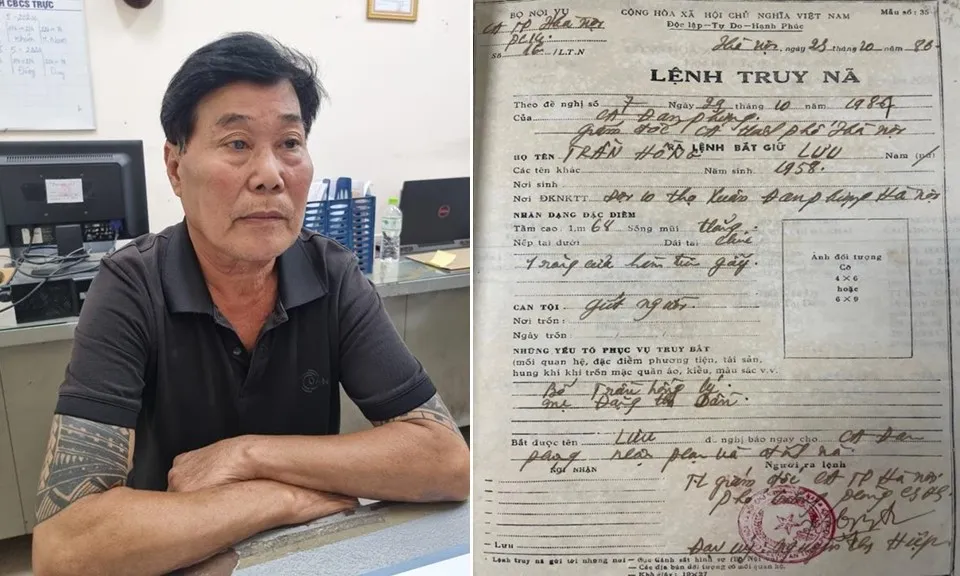 H CBCS TRỰC
BỘ NỘI VỤ
CỘNG HÒA XÃ HỘI CHỦ NGHĨA VIỆT NAM
Mẫu số: 35
CA TP Hà Nội
Độc lập—Tự Do—Hạnh Phúc
Số 16 /L.T.N
Hà Nội, ngày 29 tháng 10 năm 86
LỆNH TRUY NÃ
Theo đề nghị số 7 Ngày 29 tháng 10 năm 1986
Của CA Đan phượng
giám đốc CA thành phố Hà Nội
RA LỆNH BẮT GIỮ
HỌ TÊN TRẦN HỒNG LƯU Nam (nữ)
Các tên khác Năm sinh 1958.
Nơi sinh
Nơi ĐKNKTT Đội 10 thọ Xuân Đan phượng Hà Nội
NHÂN DẠNG ĐẶC ĐIỂM
Tầm cao 1m 68 Sống mũi thẳng
Nếp tai dưới Dái tai chúc
Ảnh đối tượng
Cỡ
4 × 6
hoặc
6 × 9
CAN TỘI giết người
Nơi trốn:
Ngày trốn:
NHỮNG YẾU TỐ PHỤC VỤ TRUY BẮT
(mối quan hệ, đặc điểm phương tiện, tài sản,
hung khí khi trốn mặc quần áo, kiểu, màu sắc v.v.
Bố Trần hồng lý.
mẹ Đặng thị Dần
Bắt được tên LƯU đ. nghị báo ngay cho CA Đan
phượng
NƠI NHẬN
Người ra lệnh
TL giám đốc CA TP Hà Nội
— Lưu
Lệnh truy nã gửi tới những nơi — Cục Cảnh sát hình sự (Bộ Nội vụ)
— Các địa bàn đối tượng có mối quan hệ.
Khổ giấy: 19×27